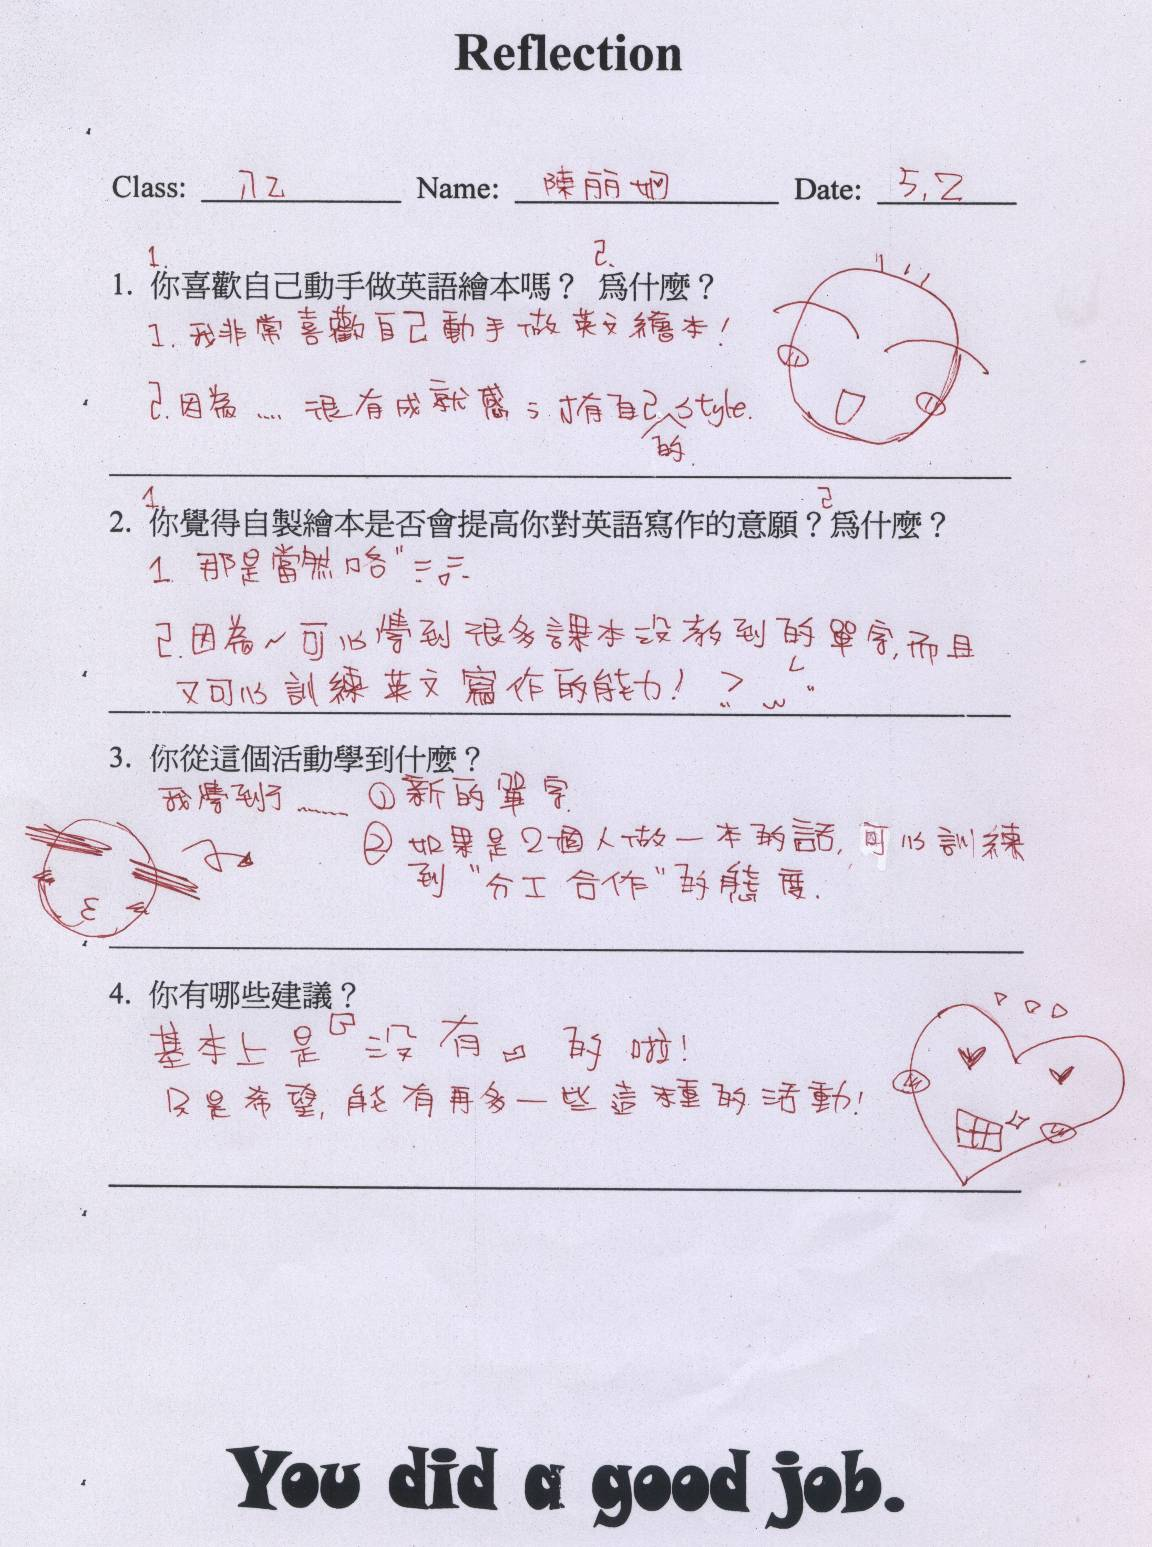 Reflection
Class: 八乙 Name: 陳丽娴 Date: 5.2
1. 2.
1. 你喜歡自己動手做英語繪本嗎？ 爲什麼？
1. 我非常喜歡自己動手做英文繪本！
2. 因為.... 很有成就感；才有自己的 style.
1. 2
2. 你覺得自製繪本是否會提高你對英語寫作的意願？爲什麼？
1. 那是當然咯"
2. 因為~可以學到很多課本沒教到的單字,而且
又可以訓練英文寫作的能力！
3. 你從這個活動學到什麼？
我學到了...... ①新的單字.
② 如果是2個人做一本的話,可以訓練
到"分工合作"的態度.
4. 你有哪些建議？
基本上是『沒有』的啦!
只是希望,能有再多一些這種的活動!
You did a good job.